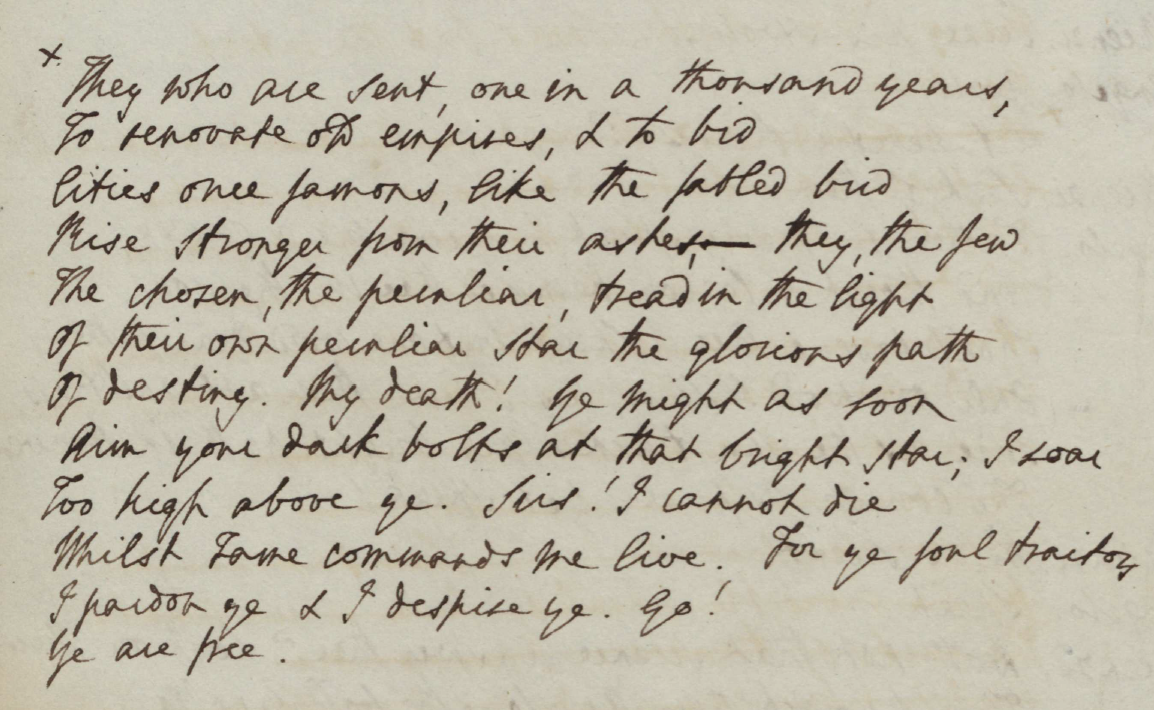 x They who are sent, one in a thousand years,
To renovate old empires, & to bid
Cities once famous, like the fabled bird
Rise stronger from their ashes,— they, the few
The chosen, the peculiar, tread in the light
Of their own peculiar star the glorious path
Of destiny. My death! Ye might as soon
Aim your dark bolts at that bright star; I soar
Too high above ye. Sirs! I cannot die
Whilst Fame commands me live. For ye foul traitors
I pardon ye & I despise ye. Go!
Ye are free.